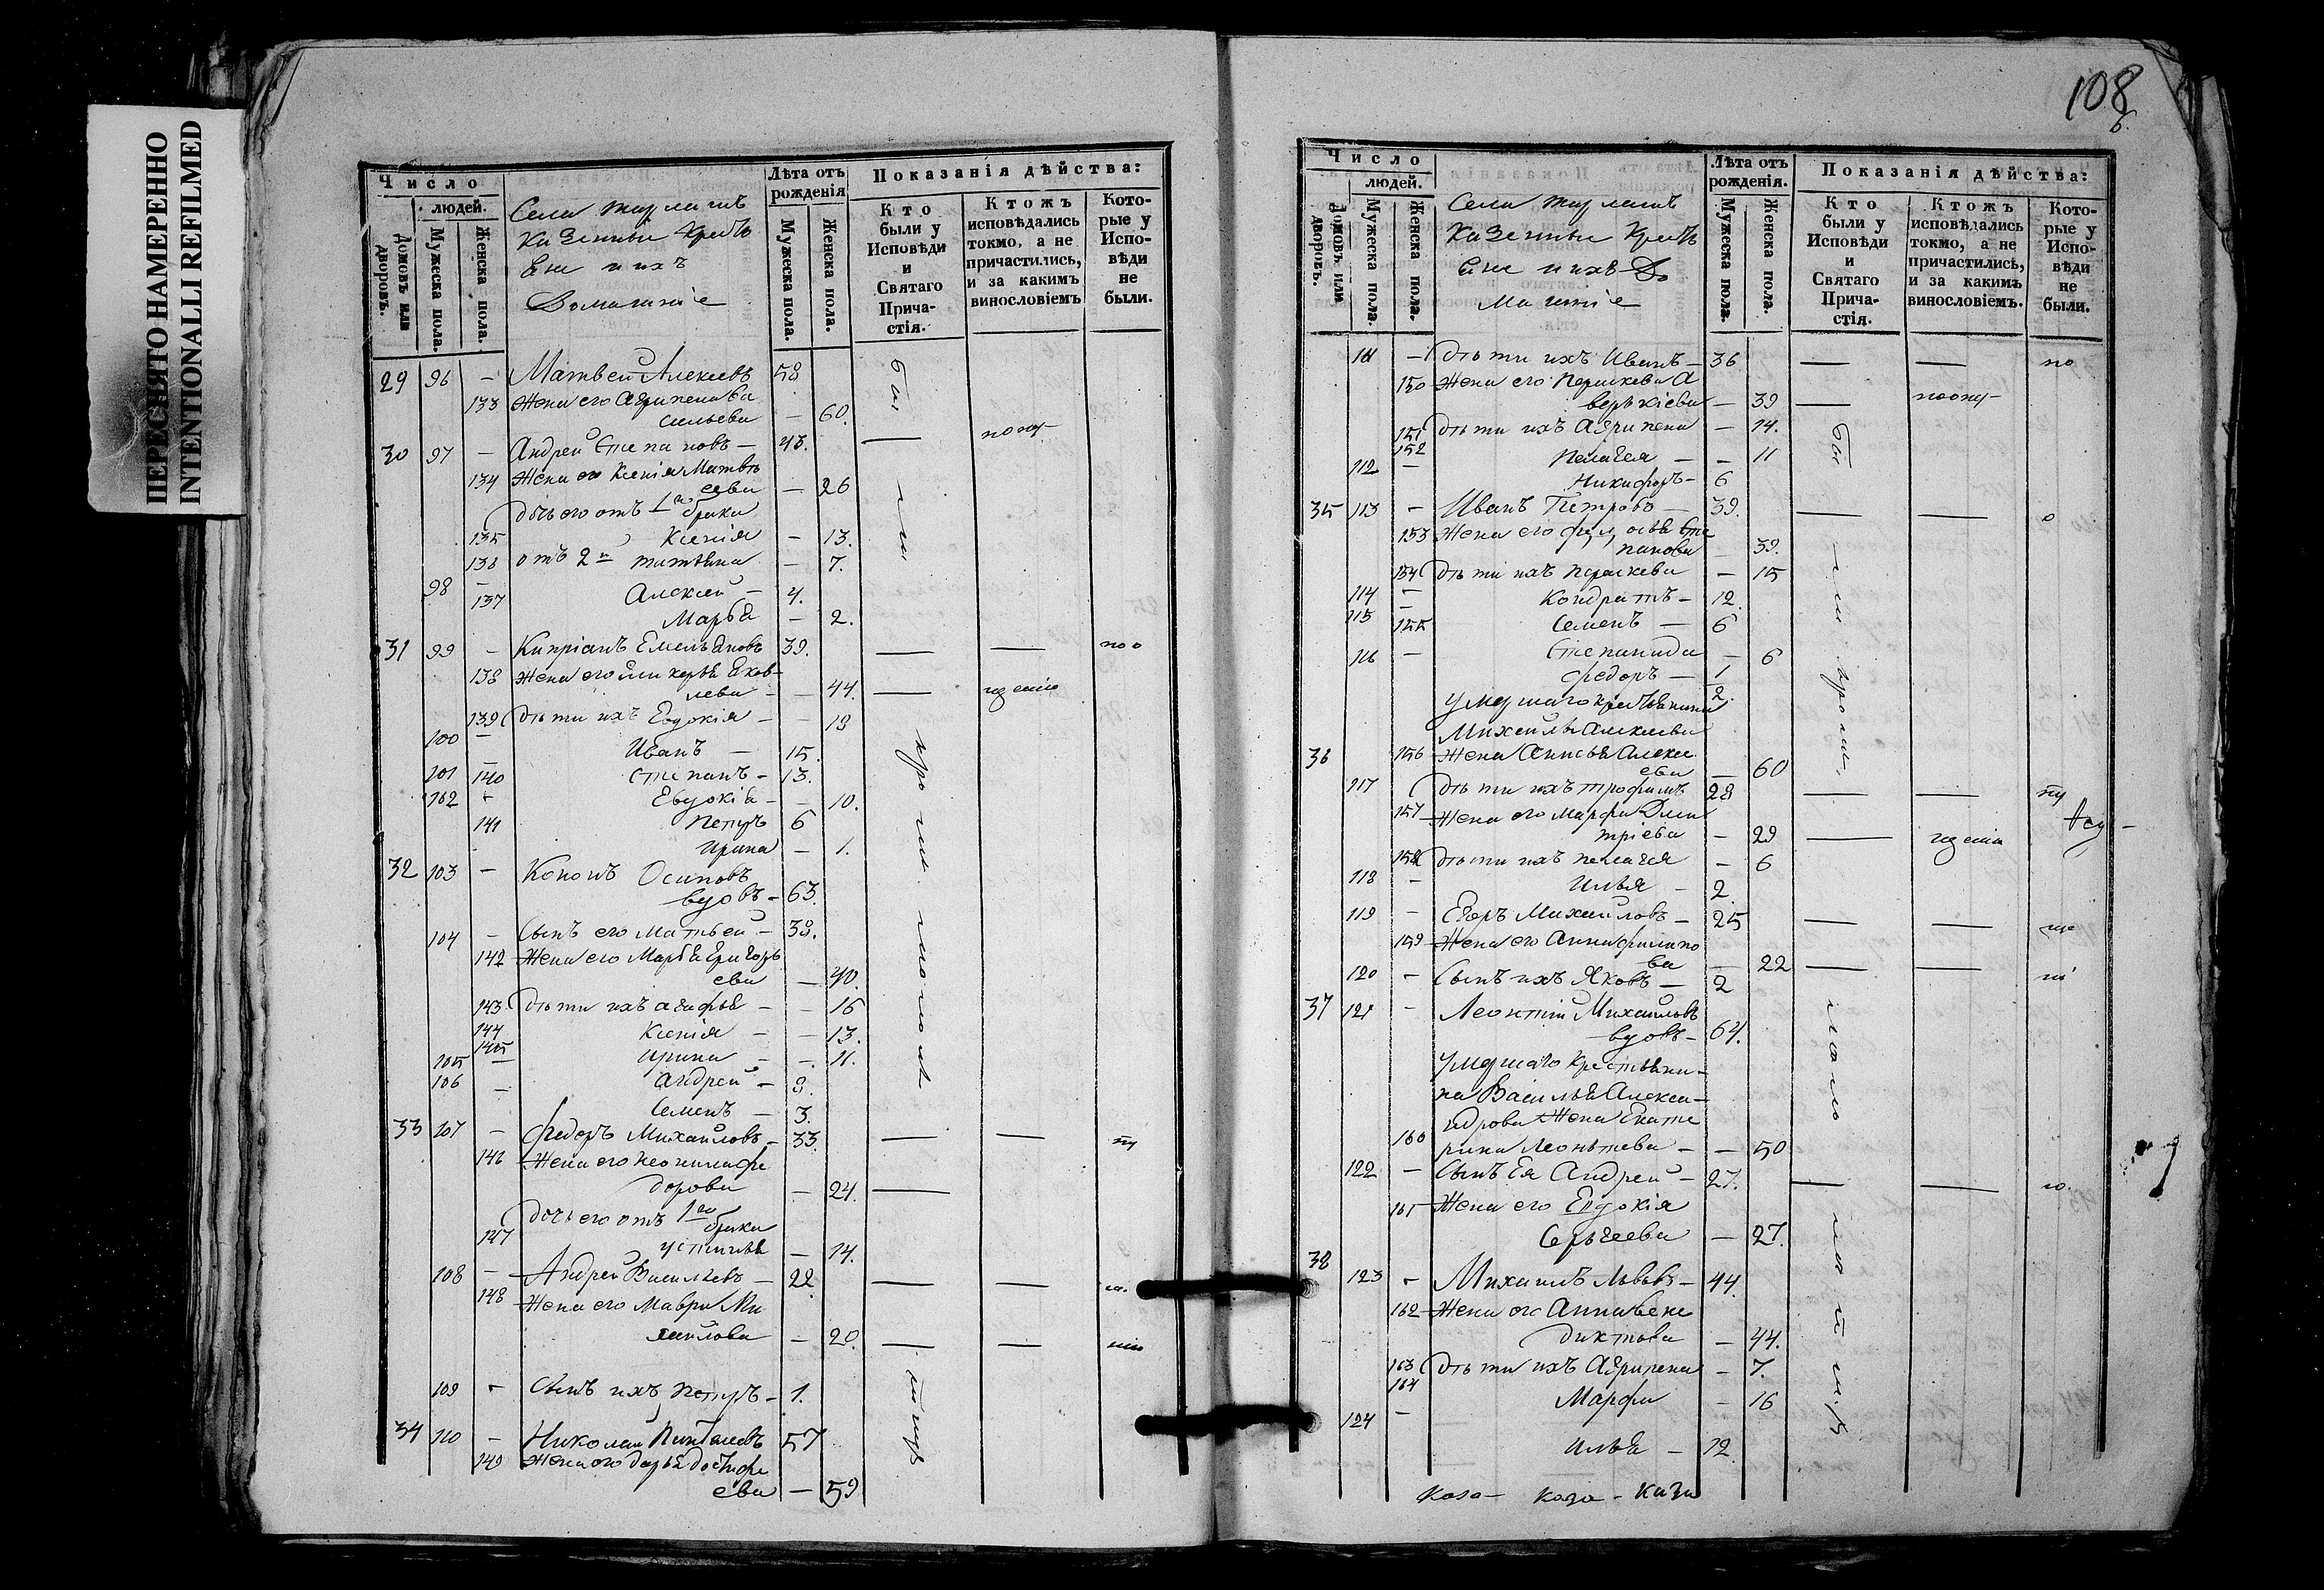 ПЕРЕСНЯТО НАМЕРЕННО
INTENTIONALLI REFILMED
Число
людей.
Домовъ или дворовъ.
Мужеска пола.
Женска пола.
Села
Казенные Кресть
яне и ихъ
Домашніе
Лѣта отъ рожденія
Мужеска пола.
Женска пола.
Показанія дѣйства:
Кто были у Исповѣди и Святаго Прича-стія.
Ктожъ исповѣдались токмо, а не причастились, и за какимъ винословіемъ
Кото-рые у Испо-вѣди не были.
29 96 — Матвей Алексеевъ 58
133 Жена его Агрипена Ва
сильева — 60.
30 97 — Андрей Степановъ — 43.
134 Жена его Ксенія Матвѣ
еева — 26
дочь его отъ 1го брака
135 Ксенія — 13.
136 отъ 2го Татьяна — 7.
98 — Алексей — 4.
137 Марья — 2.
31 99 — Кипріанъ Емельяновъ 39.
138 Жена его Гликерья Яков
лева — 44.
139 дѣти ихъ Евдокія — 19
100 — Иванъ — 15.
101 140 Степанъ — 13.
102 Евдокія — 10.
141 Петръ 6
Ирина — 1.
32 103 — Кононъ Осиповъ
вдовъ — 63.
104 — Сынъ его Матвей — 38.
142 Жена его Марья Григорь
ева — 40.
143 дѣти ихъ Агафья — 16
144 Ксенія — 13.
145 Ирина — 11.
105 — Андрей — 8.
106 — Семенъ — 3.
33 107 — Федоръ Михайловъ — 33.
146 Жена его Неонила Фе
дорова — 24.
дочь его отъ 1го брака
147 Устинья — 14.
108 — Андрей Васильевъ — 22.
148 Жена его Мавра Ми
хайлова — 20.
109 — Сынъ ихъ Петръ — 1.
34 110 — Николай 57
149 Жена его Дарья Досифе
ева — 59
108
Число
людей.
Домовъ или дворовъ.
Мужеска пола.
Женска пола.
Села
Казенные Кресть
яне и ихъ До
машніе
Лѣта отъ рожденія.
Мужеска пола.
Женска пола.
Показанія дѣйства:
Кто были у Исповѣди и Святаго Прича-стія.
Ктожъ исповѣдались токмо, а не причастились, и за какимъ винословіемъ.
Кото-рые у Испо-вѣди не были.
111 — дѣти ихъ Иванъ — 36
150 Жена его Параскева А
веркіева — 39
151 дѣти ихъ Агрипена — 14.
152 Пелагея — 11
112 — Никифоръ — 6
35 113 — Иванъ Петровъ — 39.
153 Жена его Сте
панова — 39.
154 дѣти ихъ Параскева — 15
114 — Кондратъ — 12.
115 — Семенъ — 6
155 Степанида — 6
116 — Федоръ — 1
Умершаго крестьянина
Михаила Алексеева
36 156 Жена Анисья Алексе
ева — 60
117 дѣти ихъ Трофимъ 28
157 Жена его Марфа Дми
тріева — 29
158 дѣти ихъ Пелагея — 6
118 — Илья — 2.
119 — Егоръ Михайловъ — 25
159 Жена его Анна Филипо
ва — 22
120 — Сынъ ихъ Яковъ — 2
37 121 — Леонтій Михайловъ
вдовъ — 64.
Умершаго крестьяни-
на Василья Алекса-
ндрова Жена Екате
160 рина Леонтьева — 50
122 — Сынъ Ея Андрей — 27.
161 Жена его Евдокія
Сергеева — 27.
38 123 — Михаилъ Львовъ — 44.
162 Жена его Анна Бене
диктова — 44.
163 дѣти ихъ Агрипена — 7.
164 Марфа — 16
124 — Илья — 12